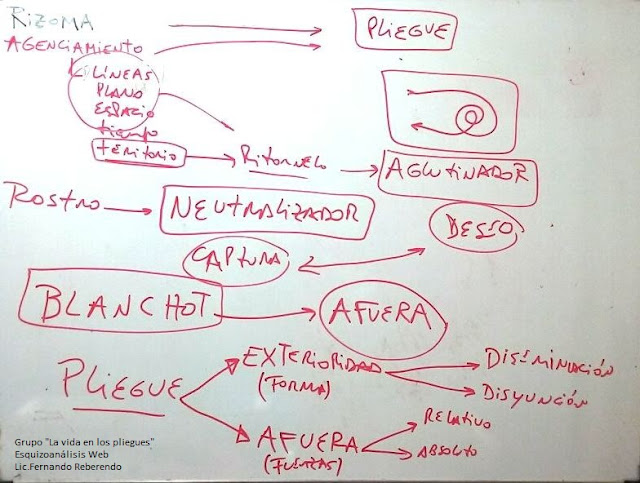 RIZOMA
PLIEGUE
AGENCIAMIENTO
LÍNEAS
PLANO
ESPACIO
tiempo
territorio
Ritornelo
AGLUTINADOR
Rostro
NEUTRALIZADOR
DESEO
CAPTURA
BLANCHOT
AFUERA
PLIEGUE
EXTERIORIDAD
(FORMA)
DISEMINACIÓN
DISYUNCIÓN
AFUERA
(FUERZAS)
RELATIVO
ABSOLUTO
Grupo "La vida en los pliegues"
Esquizoanálisis Web
Lic.Fernando Reberendo